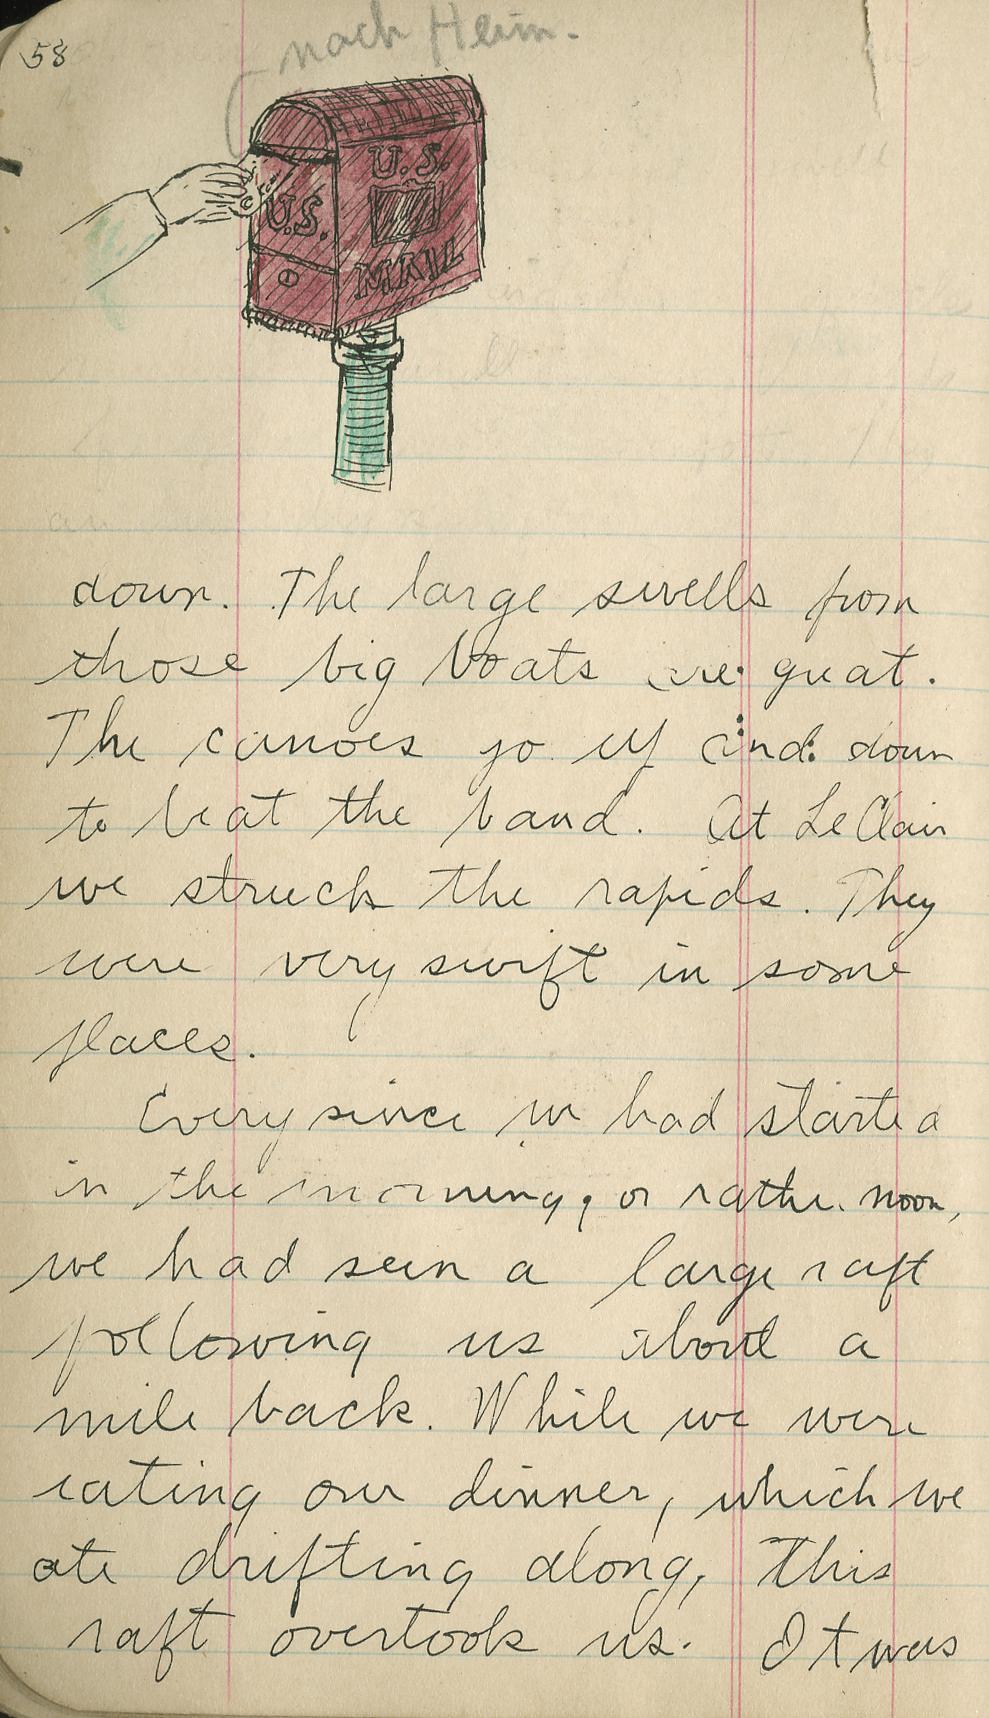 58
nach Heim.
U.S.
U.S.
MAIL
down. The large swells from
those big boats are great.
The canoes go up and down
to beat the band. At Le Clair
we struck the rapids. They
were very swift in some
places.
Every since we had started
in the morning, or rather noon,
we had seen a large raft
following us about a
mile back. While we were
eating our dinner, which we
ate drifting along, this
raft overtook us. It was